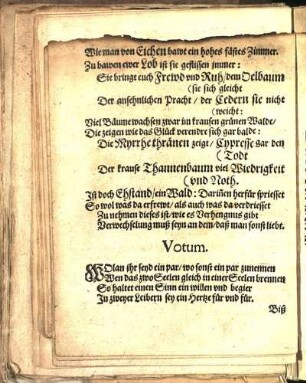 Wie man von Eichen bawt ein hohes fästes Zimmer.
Zu bawen ewer Lob ist sie geflissen immer:
Sie bringt euch Frewd vnd Ruh/dem Oelbaum
(sie sich gleicht
Der ansehnlichen Pracht/ der Cedern sie nicht
(weicht:
Viel Bäume wachsen zwar im krausen grünen Walde/
Die zeigen wie das Glück verendre sich gar balde:
Die Myrrhe thränen zeigt/ Cypresse gar den
(Todt
Der krause Thannenbaum viel Wiedrigkeit
(vnd Noth.
Ist doch Ehstand/ein Wald: Dariñen herfür sprieset
So wol was da erfrewt/als auch was da verdriesset
Zu nehmen dieses ist/wie es Verhengnus gibt
Verwechselung muß seyn an dem/daß man sonst liebt.
Votum.
WOlan ihr seyd ein par/ wo sonst ein par zunennen
Wen das zwo Seelen gleich in einer Seelen brennen
So haltet einen Sinn ein willen vnd begier
In zweyer Leibern sey ein Hertze für vnd für.
Biß